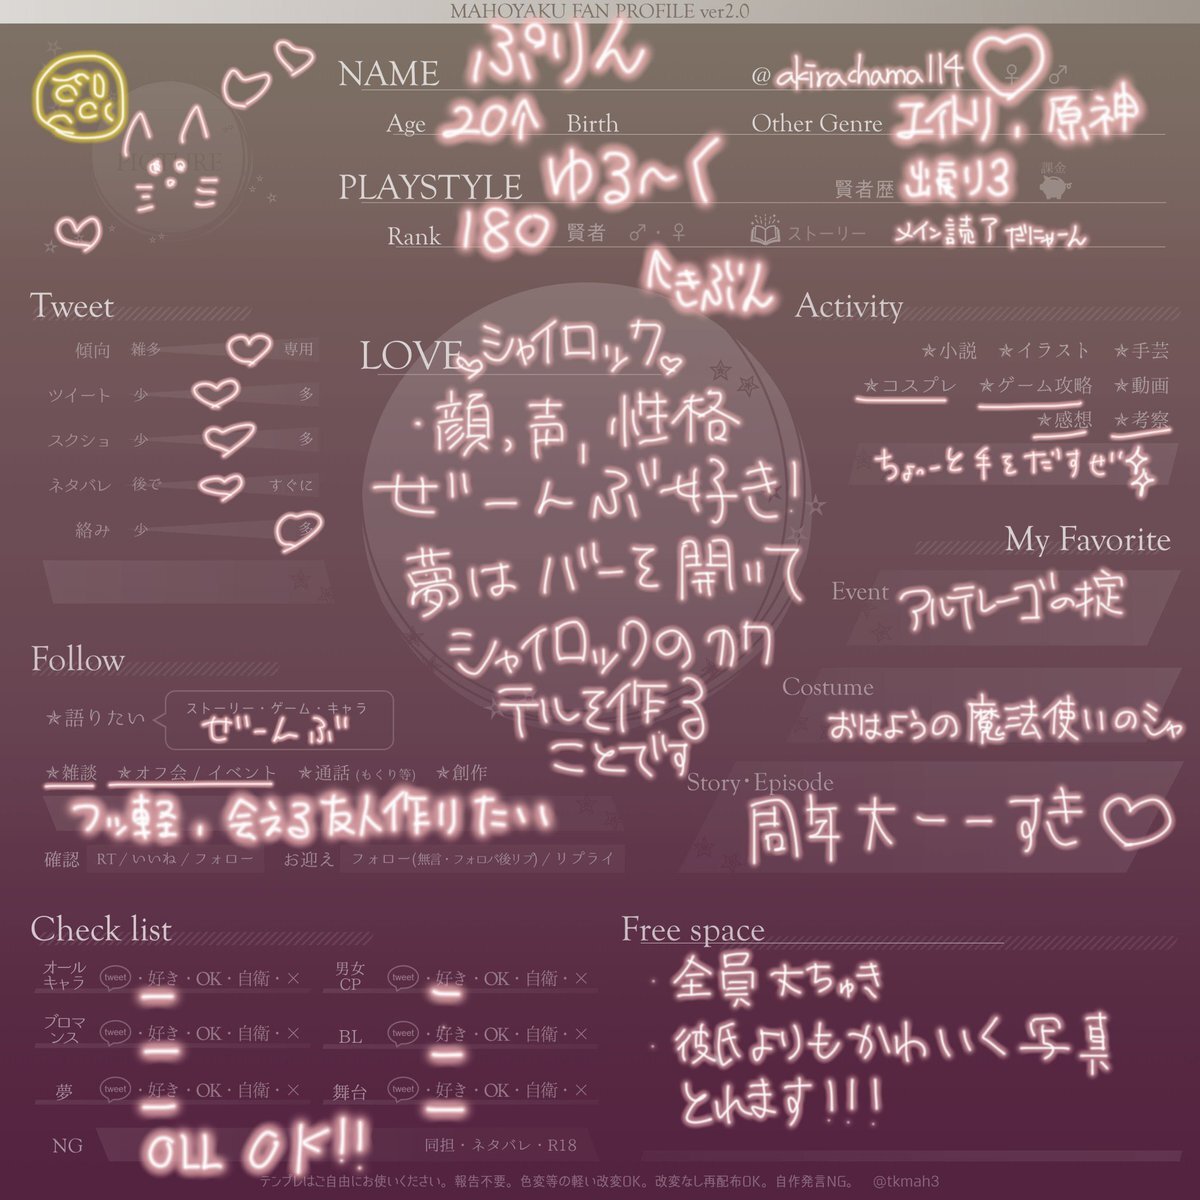 MAHOYAKU FAN PROFILE ver2.0
ぷりん
NAME ぷりん
@akirachama114 ♀ ♂
Age 20↑ Birth
Other Genre エイトリ, 原神
PLAYSTYLE ゆる〜く
賢者歴 出戻り3 課金
Rank 180 賢者 ♂・♀
ストーリー メイン読了だにゃーん
↑きぶん
Tweet
傾向 雑多 専用
ツイート 少 多
スクショ 少 多
ネタバレ 後で すぐに
絡み 少 多
LOVE シャイロック
・顔, 声, 性格
ぜーんぶ好き!
夢はバーを開いて
シャイロックのカク
テルを作る
ことです
Activity
★小説 ★イラスト ★手芸
★コスプレ ★ゲーム攻略 ★動画
★感想 ★考察
ちょーっと手をだすぜ
My Favorite
Event アルテレーゴの掟
Costume
おはようの魔法使いのシャ
Story・Episode
周年大ーーすき♡
Follow
★語りたい ストーリー・ゲーム・キャラ
ぜーんぶ
★雑談 ★オフ会 / イベント ★通話 (もくり等) ★創作
フッ軽, 会える友人作りたい
確認 RT / いいね / フォロー お迎え フォロー(無言・フォロバ後リプ) / リプライ
Check list
オールキャラ tweet ・好き・OK・自衛・×
男女CP tweet ・好き・OK・自衛・×
ブロマンス tweet ・好き・OK・自衛・×
BL tweet ・好き・OK・自衛・×
夢 tweet ・好き・OK・自衛・×
舞台 tweet ・好き・OK・自衛・×
NG OLL OK!! 同担・ネタバレ・R18
Free space
・全員大ちゅき
・彼氏よりもかわいく写真
とれます!!!
テンプレはご自由にお使いください。報告不要。色変等の軽い改変OK。改変なし再配布OK。自作発言NG。 @tkmah3